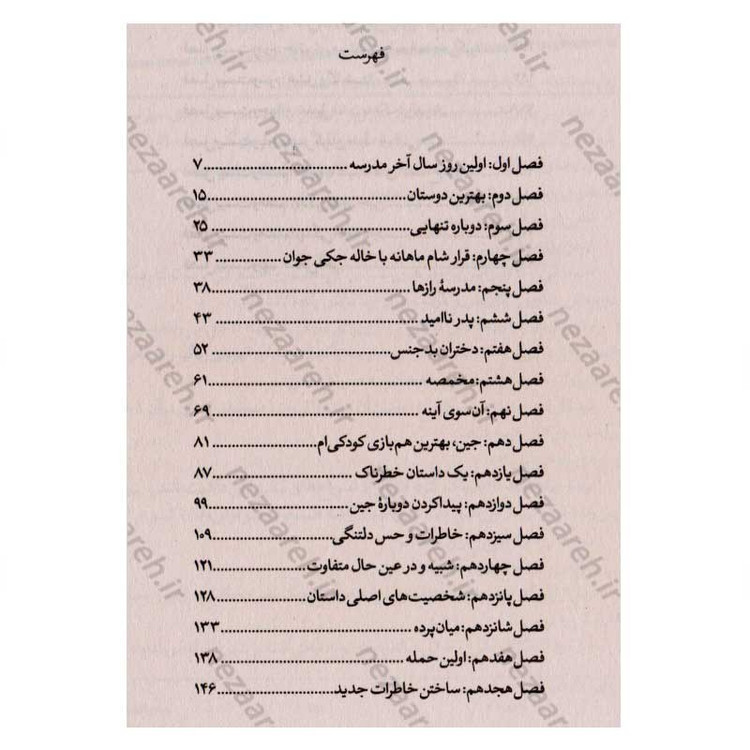 فهرست
فصل اول: اولین روز سال آخر مدرسه ........................۷
فصل دوم: بهترین دوستان........................۱۵
فصل سوم: دوباره تنهایی........................ ۲۵
فصل چهارم: قرار شام ماهانه با خاله جکی جوان ................ ۳۳
فصل پنجم: مدرسهٔ رازها........................ ۳۸
فصل ششم: پدر ناامید ........................ ۴۳
فصل هفتم: دختران بدجنس........................ ۵۲
فصل هشتم: مخمصه ........................ ۶۱
فصل نهم: آن‌سوی آینه ........................ ۶۹
فصل دهم: جین، بهترین هم‌بازی کودکی‌ام........................ ۸۱
فصل یازدهم: یک داستان خطرناک ........................ ۸۷
فصل دوازدهم: پیداکردن دوبارهٔ جین ........................ ۹۹
فصل سیزدهم: خاطرات و حس دلتنگی ........................ ۱۰۹
فصل چهاردهم: شبیه و در عین حال متفاوت ........................ ۱۲۱
فصل پانزدهم: شخصیت‌های اصلی داستان ........................ ۱۲۸
فصل شانزدهم: میان‌پرده ........................ ۱۳۳
فصل هفدهم: اولین حمله ........................ ۱۳۸
فصل هجدهم: ساختن خاطرات جدید........................ ۱۴۶
nezaareh.ir